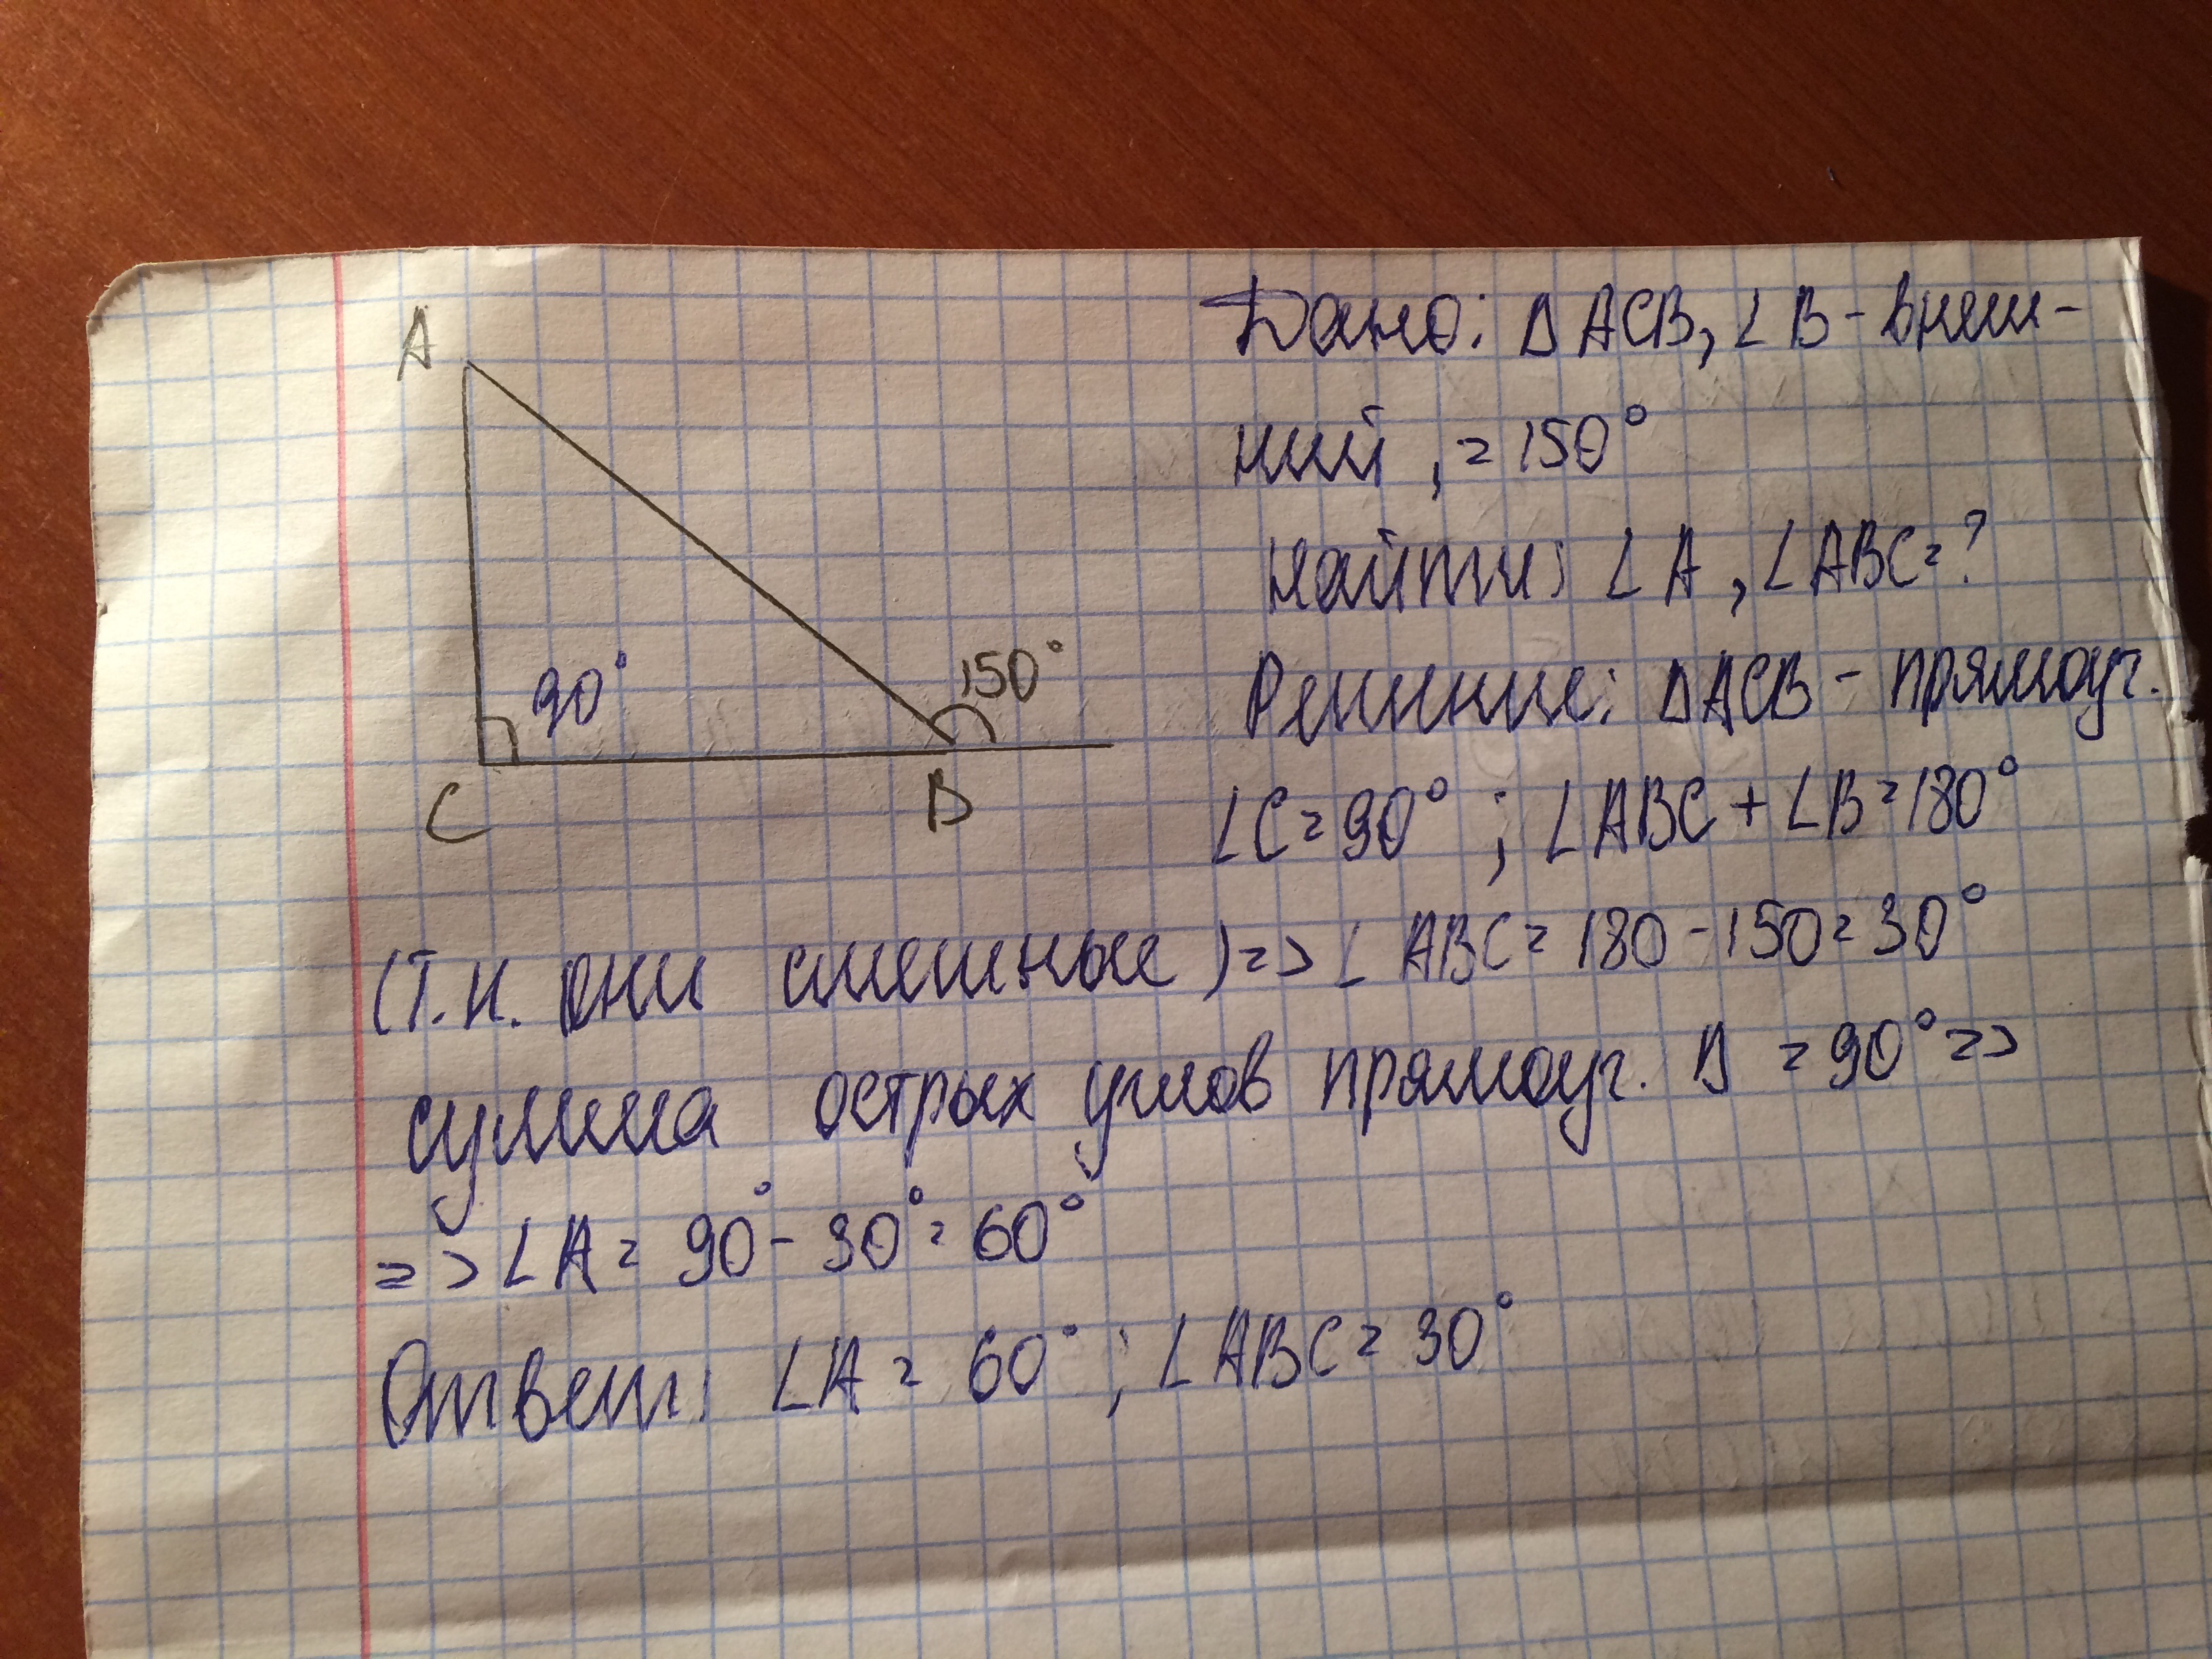 A
90°
150°
C
B
Дано: ΔACB, ∠B - внеш-
ний, = 150°
Найти: ∠A, ∠ABC=?
Решение: ΔACB - прямоуг.
∠C=90°; ∠ABC + ∠B=180°
(т.к. они смежные)=>∠ABC=180-150=30°
сумма острых углов прямоуг. Δ =90°=>
=>∠A= 90°- 30°= 60°
Ответ: ∠A= 60°; ∠ABC= 30°